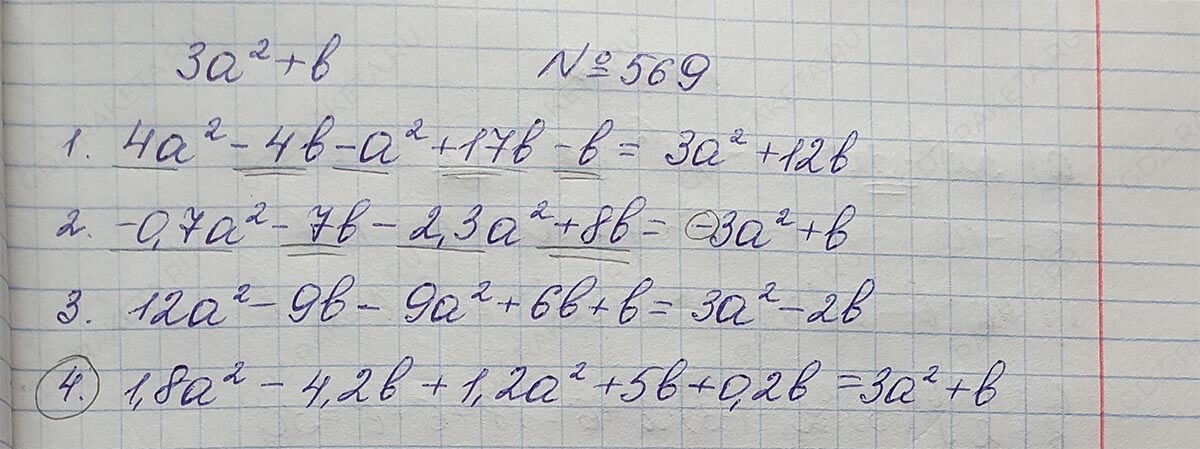 3a² + b № 569
1. 4a² - 4b - a² + 17b - b = 3a² + 12b
2. -0,7a² - 7b - 2,3a² + 8b = -3a² + b
3. 12a² - 9b - 9a² + 6b + b = 3a² - 2b
4. 1,8a² - 4,2b + 1,2a² + 5b + 0,2b = 3a² + b